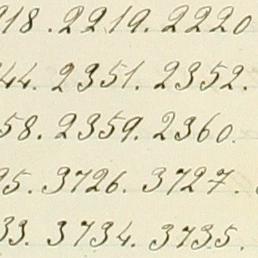 218. 2219. 2220
44. 2351. 2352.
58. 2359. 2360.
25. 3726. 3727.
33. 3734. 3735.